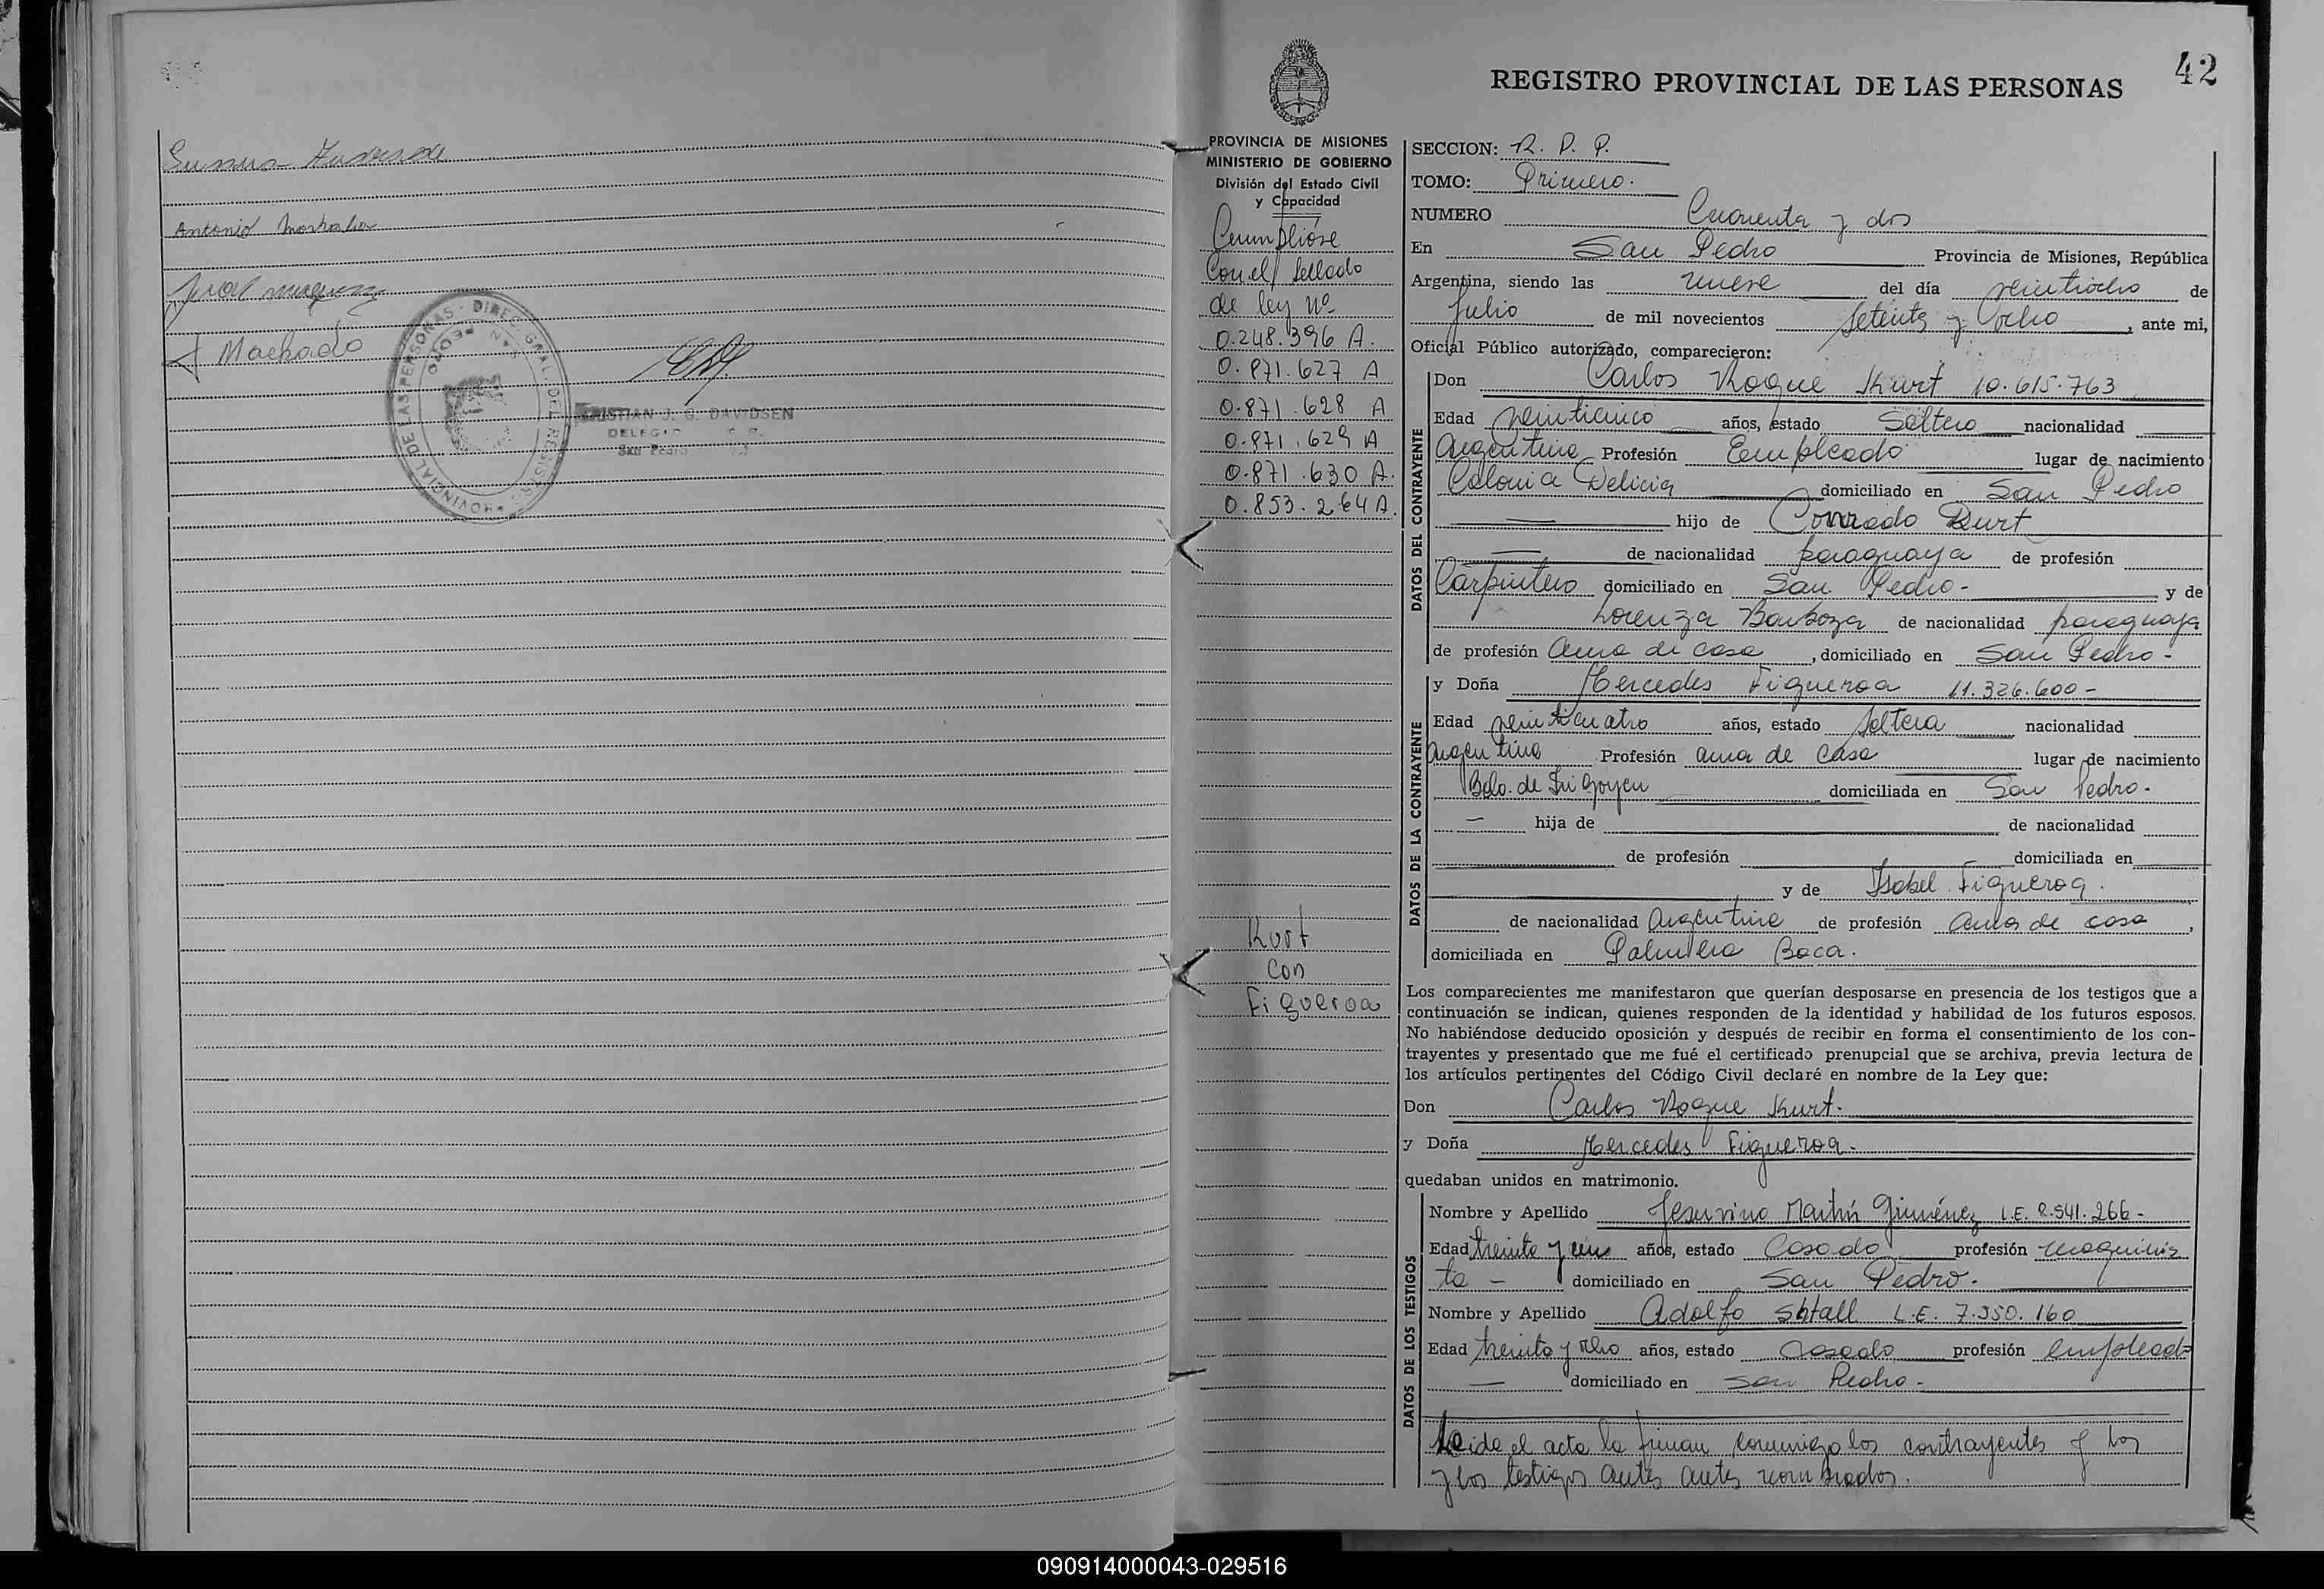 Antonio
Machado
REGISTRO PROVINCIAL DE LAS PERSONAS
PROVINCIAL DE LAS PERSONAS - DIREC. GRAL. DEL REGISTRO
SAN PEDRO
CRISTIAN J. G. DAVIDSEN
DELEGADO
San Pedro
42
REGISTRO PROVINCIAL DE LAS PERSONAS
PROVINCIA DE MISIONES
MINISTERIO DE GOBIERNO
División del Estado Civil
y Capacidad
Cumpliose
Con el Sellado
de ley Nº
0.248.396 A.
0.871.627 A
0.871.628 A
0.871.629 A
0.871.630 A.
0.853.264 A.
Kurt
Con
Figueroa
SECCION: R. P. P.
TOMO: Primero.
NUMERO Cuarenta y dos
En San Pedro Provincia de Misiones, República
Argentina, siendo las nueve del día veintiocho de
Julio de mil novecientos Setenta y Ocho, ante mi,
Oficial Público autorizado, comparecieron:
DATOS DEL CONTRAYENTE
Don Carlos Roque Kurt 10.615.763
Edad veinticinco años, estado Soltero nacionalidad
Argentina Profesión Empleado lugar de nacimiento
Colonia Delicia domiciliado en San Pedro
hijo de Conrado Kurt
de nacionalidad paraguaya de profesión
Carpintero domiciliado en San Pedro- y de
Lorenza Barboza de nacionalidad paraguaya
de profesión Ama de casa, domiciliado en San Pedro-
DATOS DE LA CONTRAYENTE
y Doña Mercedes Figueroa 11.326.600-
Edad veinticuatro años, estado Soltera nacionalidad
Argentina Profesión ama de casa lugar de nacimiento
Bdo. de Irigoyen domiciliada en San Pedro.
- hija de de nacionalidad
de profesión domiciliada en
y de Isabel Figueroa.
de nacionalidad Argentina de profesión ama de casa,
domiciliada en Palmera Boca.
Los comparecientes me manifestaron que querían desposarse en presencia de los testigos que a
continuación se indican, quienes responden de la identidad y habilidad de los futuros esposos.
No habiéndose deducido oposición y después de recibir en forma el consentimiento de los con-
trayentes y presentado que me fué el certificado prenupcial que se archiva, previa lectura de
los artículos pertinentes del Código Civil declaré en nombre de la Ley que:
Don Carlos Roque Kurt.
y Doña Mercedes Figueroa.
quedaban unidos en matrimonio.
DATOS DE LOS TESTIGOS
Nombre y Apellido Jesuvino Martín Giménez L.E. 8.541.266-
Edad treinta y un años, estado Casado profesión maquinis
ta - domiciliado en San Pedro.
Nombre y Apellido Adolfo Shtall L.E. 7.550.160
Edad treinta y ocho años, estado Casado profesión empleado
domiciliado en San Pedro-
Leida el acta la firman conmigo los contrayentes y los
y los testigos antes antes nombrados.
090914000043-029516